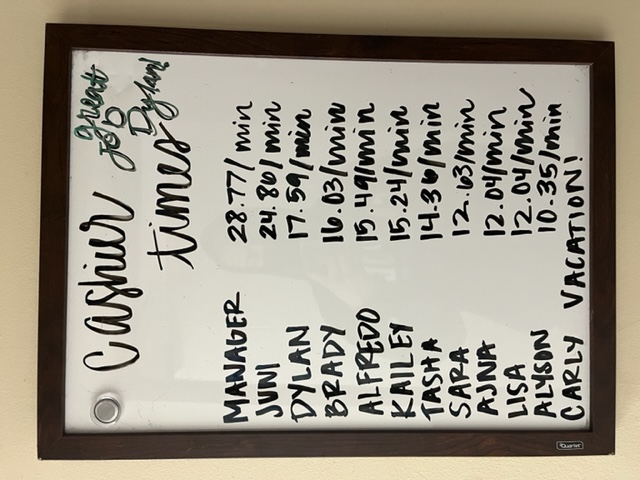 Cashier
times
great
job
Dylan!
MANAGER 28.77/min
JUNI 24.86/min
DYLAN 17.59/min
BRADY 16.03/min
ALFREDO 15.49/min
KAILEY 15.24/min
TASHA 14.36/min
SARA 12.63/min
AJNA 12.04/min
LISA 12.04/min
ALYSON 10.35/min
CARLY VACATION!
Quartet